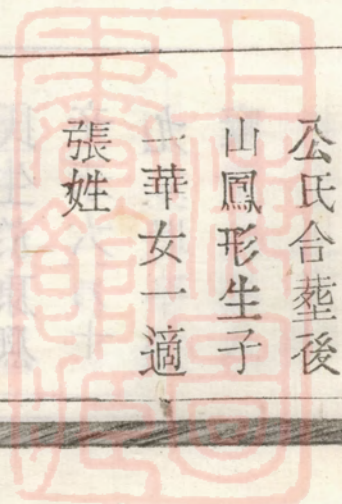 公氏合塟後
山鳳形生子
一華女一適
張姓